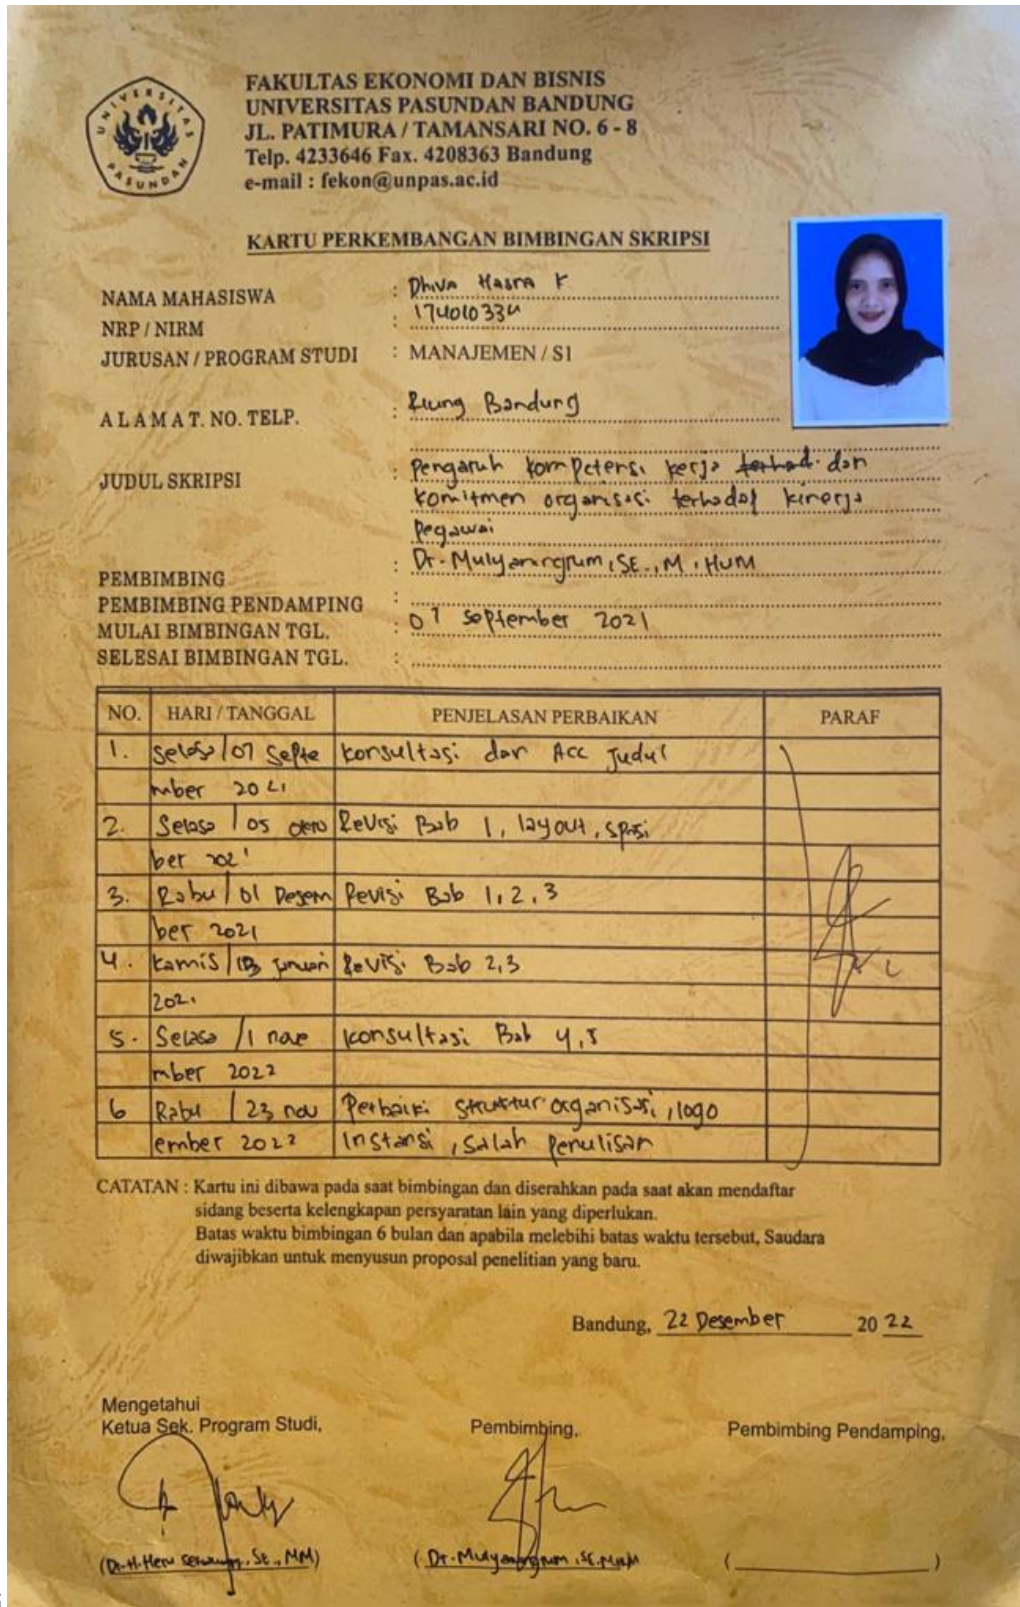 UNIVERSITAS
PASUNDAN
FAKULTAS EKONOMI DAN BISNIS
UNIVERSITAS PASUNDAN BANDUNG
JL. PATIMURA / TAMANSARI NO. 6 - 8
Telp. 4233646 Fax. 4208363 Bandung
e-mail : fekon@unpas.ac.id
KARTU PERKEMBANGAN BIMBINGAN SKRIPSI
NAMA MAHASISWA : Dhiva Hasna F
NRP / NIRM : 174010334
JURUSAN / PROGRAM STUDI : MANAJEMEN / S1
ALAMAT. NO. TELP. : Riung Bandung
JUDUL SKRIPSI : Pengaruh kompetensi kerja terhad. dan
komitmen organisasi terhadap kinerja
Pegawai
PEMBIMBING : Dr. Mulyaningrum, SE., M. HUM
PEMBIMBING PENDAMPING :
MULAI BIMBINGAN TGL. : 07 September 2021
SELESAI BIMBINGAN TGL. :
NO. HARI / TANGGAL PENJELASAN PERBAIKAN PARAF
1. Selasa / 07 Septe Konsultasi dan Acc Judul
mber 2021
2. Selasa / 05 Okto Revisi Bab 1, layout, spasi
ber 2021
3. Rabu / 01 Desem Revisi Bab 1, 2, 3
ber 2021
4. Kamis / 13 Januari Revisi Bab 2, 3
5. Selasa / 1 nove Konsultasi Bab 4, 5
mber 2022
6 Rabu / 23 nov Perbaiki struktur organisasi, logo
ember 2022 Instansi, Salah Penulisan
CATATAN : Kartu ini dibawa pada saat bimbingan dan diserahkan pada saat akan mendaftar
sidang beserta kelengkapan persyaratan lain yang diperlukan.
Batas waktu bimbingan 6 bulan dan apabila melebihi batas waktu tersebut, Saudara
diwajibkan untuk menyusun proposal penelitian yang baru.
Bandung, 22 Desember 2022
Mengetahui
Ketua Sek. Program Studi, Pembimbing, Pembimbing Pendamping,
(Dr. H. Heru Setiawan, SE., MM) (Dr. Mulyaningrum, SE. M.HUM ( )